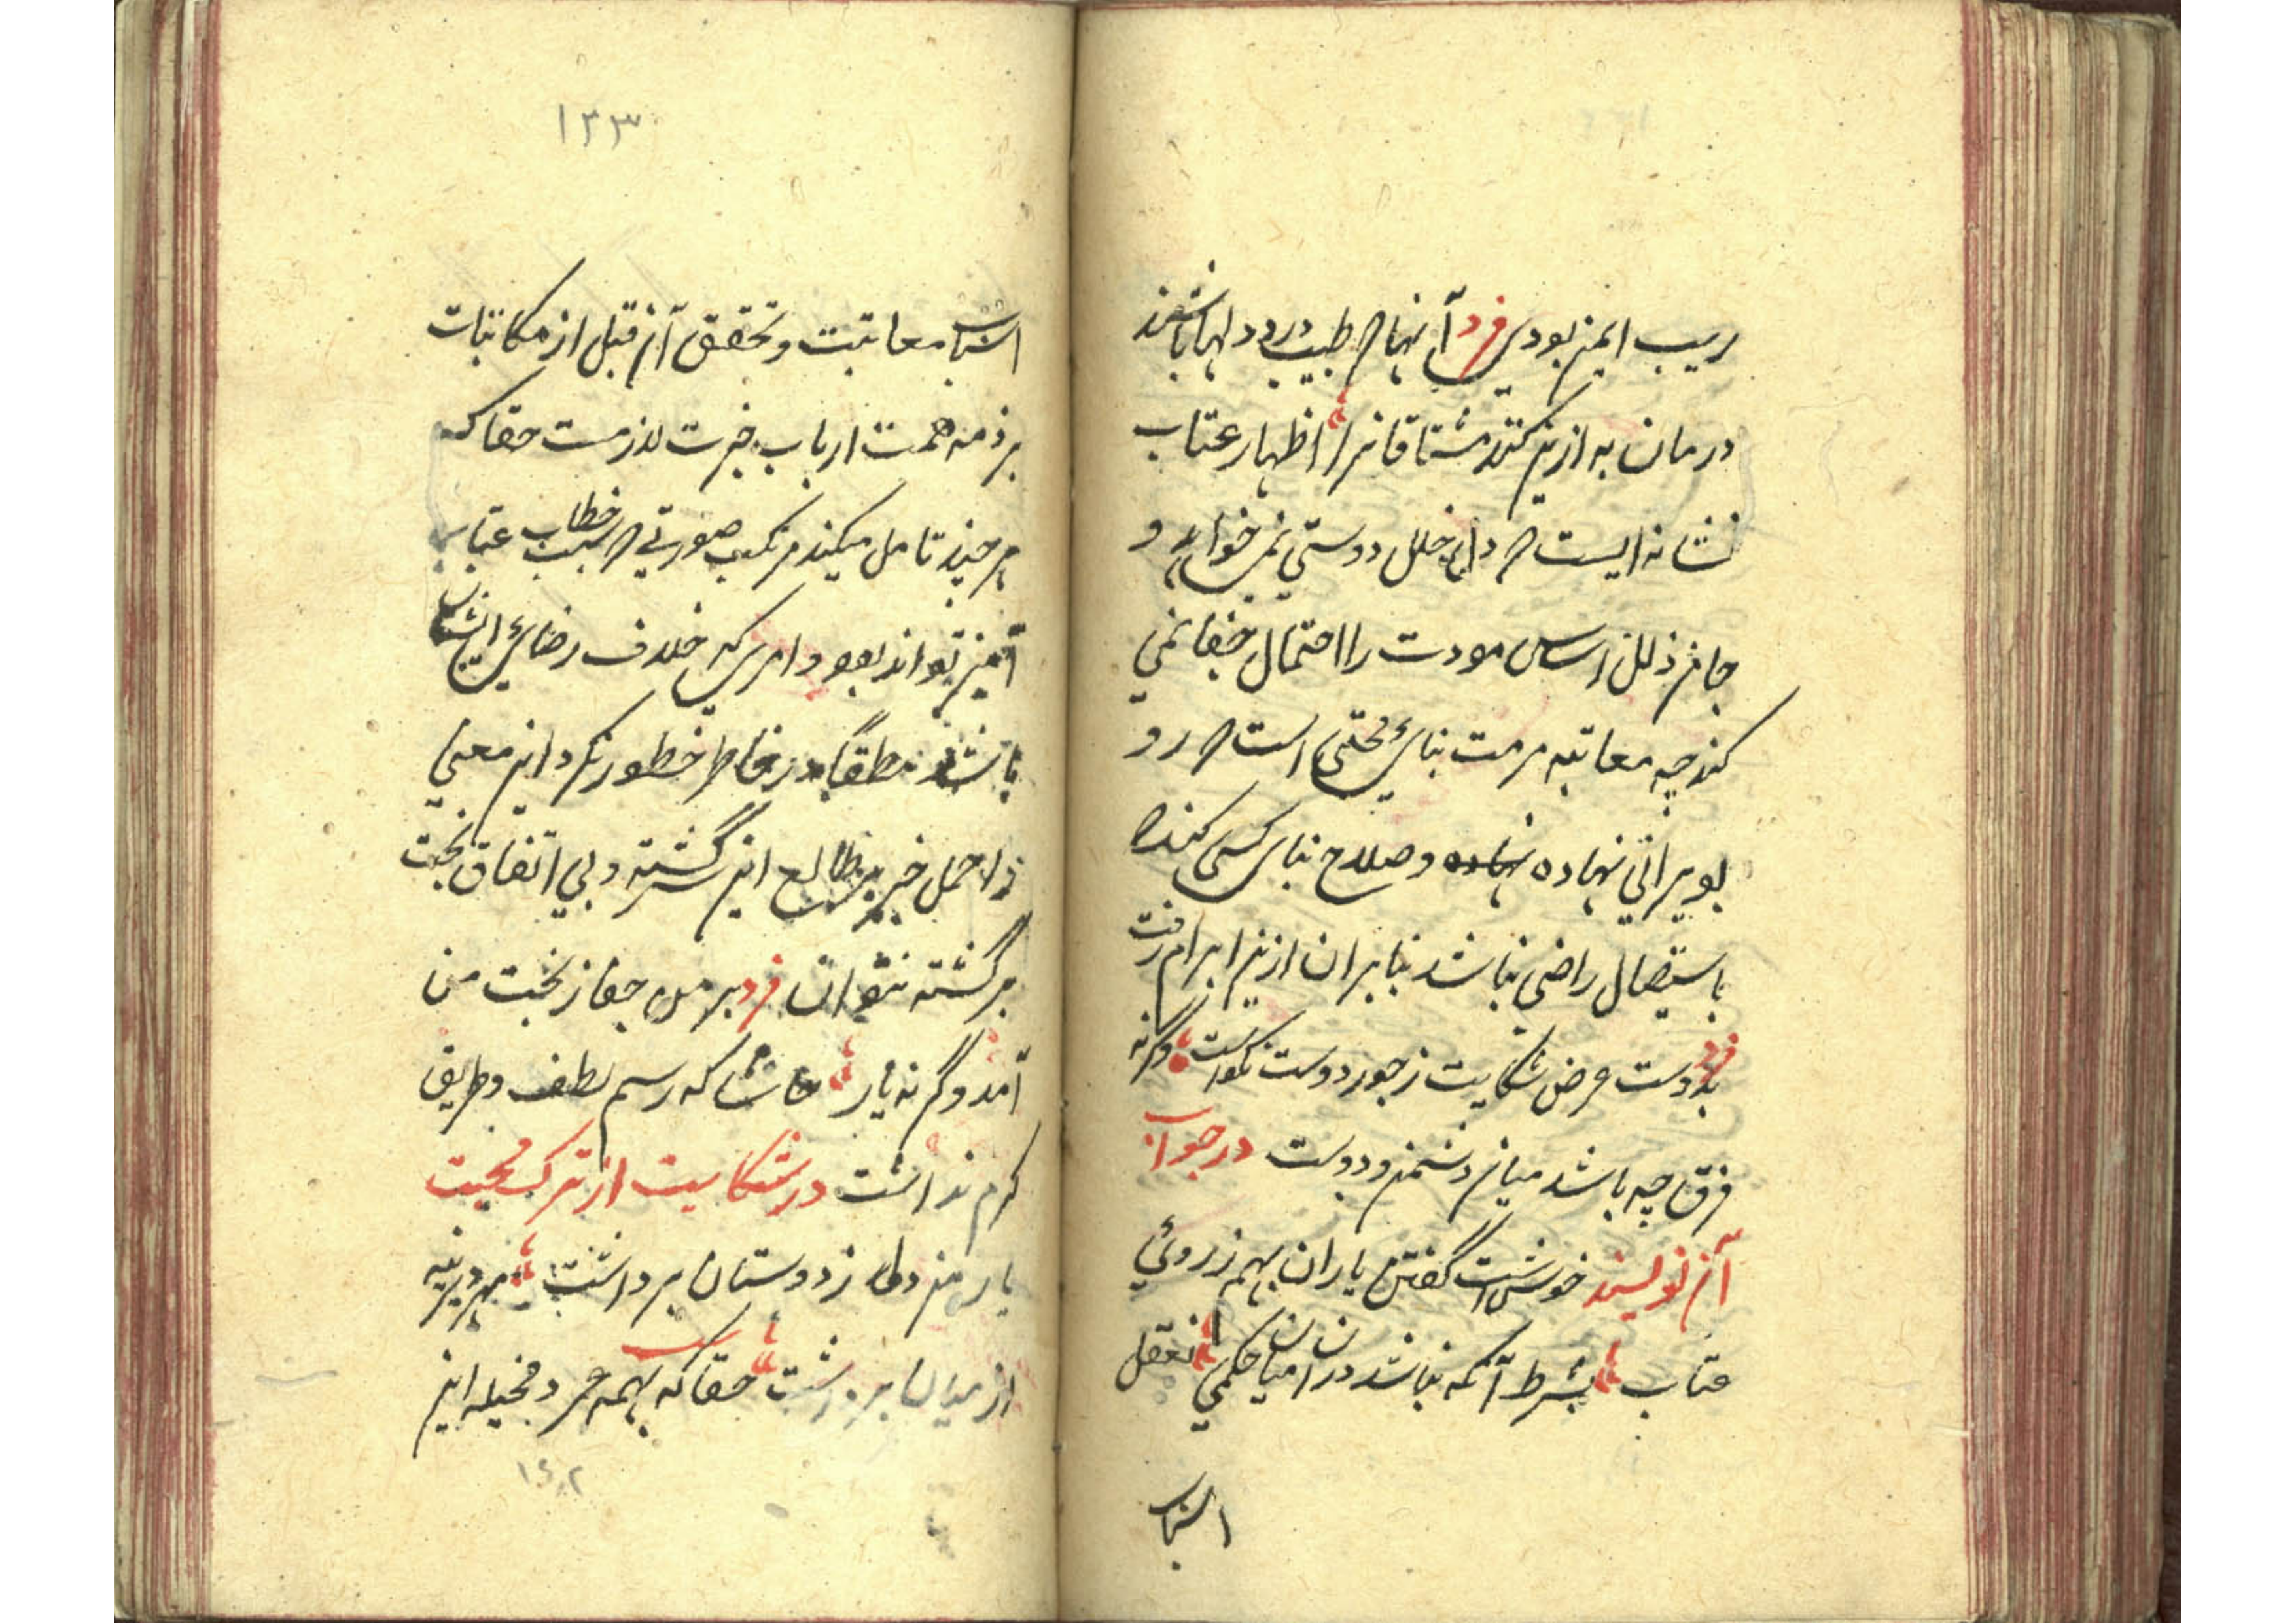 ریب ایمن بودی فرد آنها که طبیب درد دلها باشند
درمان به ازین کنند مشتاقانرا اظهار عتاب
نشانه ایست که دران خلل دوستی نمی خواهد و
جانم ذلل اساس مودت را احتمال جفا نمی
کند چه معاتبه مرمت بنای محبتی است که رو
بویرانی نهاده نهاده و صلاح بنای کسی کند که
باستیصال راضی نباشد بنابران ازین ابرام رفت
فرد بدوست عرض شکایت ز جور دوست نکوست وگرنه
فرق چه باشد میان دشمن و دوست در جواب
آن نویسند خوش است گفتن یاران بهم ز روئی
عتاب بشرط آنکه نباشد دران میان جنگی تعقل
اسباب
۱۳۳
اسباب معاتبت و تحقیق آن قبل از مکاتبات
بر ذمه همت ارباب خبرت لازمست حقا که
هر چند تامل میکند مرتکب صورتی که سبب خطاب عتاب
آمیز تواند بود و امری که خلاف رضای ایشان
باشد مطلقا در خاطر خطور نکرد این معنی
را حمل خبر بر طالع این سرگشته و بی اتفاقی بخت
برگشته نتوان فرد بر من جفا ز بخت من
آمد وگرنه یار حاشا که رسم لطف و طریق
کرم نداشت در شکایت از ترک محبت
یار من دل ز دوستان برداشت مهر دیرینه
از میان برداشت حقا که بهمه عمر در مخیله این